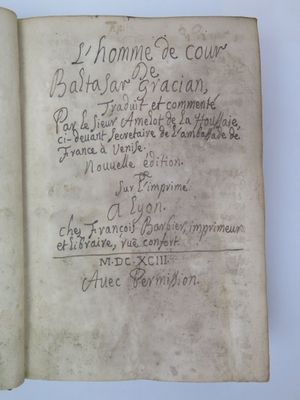 L'homme de cour
De
Baltasar Gracian,
Traduit et commenté
Par le Sieur Amelot de La Houssaie
ci-devant Secretaire de l'ambassade de
France à Venise.
Nouvelle édition.
Sur l'imprimé
A Lyon.
chez François Barbier, imprimeur
et libraire, rue confort
M·DC·XCIII·
Avec Permission.